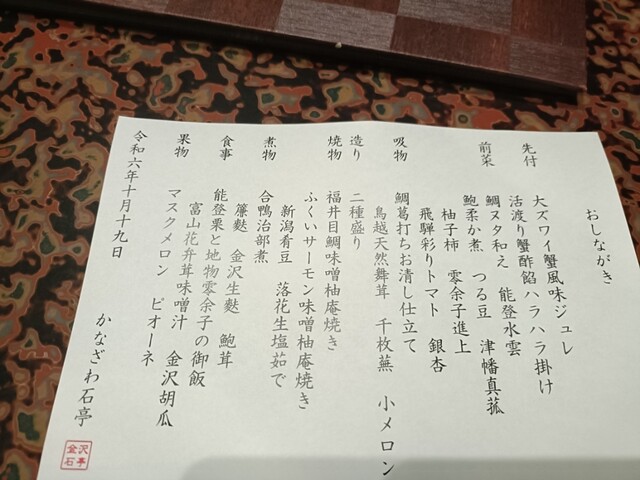 おしながき
先付 大ズワイ蟹風味ジュレ
活渡り蟹酢餡ハラハラ掛け
前菜 鯛ヌタ和え 能登水雲
鮑柔か煮 つる豆 津幡真菰
柚子柿 零余子進上
飛騨彩りトマト 銀杏
吸物 鯛葛打ちお清し仕立て
鳥越天然舞茸 千枚蕪 小メロン
造り 二種盛り
焼物 福井目鯛味噌柚庵焼き
ふくいサーモン味噌柚庵焼き
新潟肴豆 落花生塩茹で
煮物 合鴨治部煮
簾麩 金沢生麩 鮑茸
食事 能登栗と地物零余子の御飯
富山花弁茸味噌汁 金沢胡瓜
果物 マスクメロン ピオーネ
令和六年十月十九日
かなざわ石亭
金沢
石亭